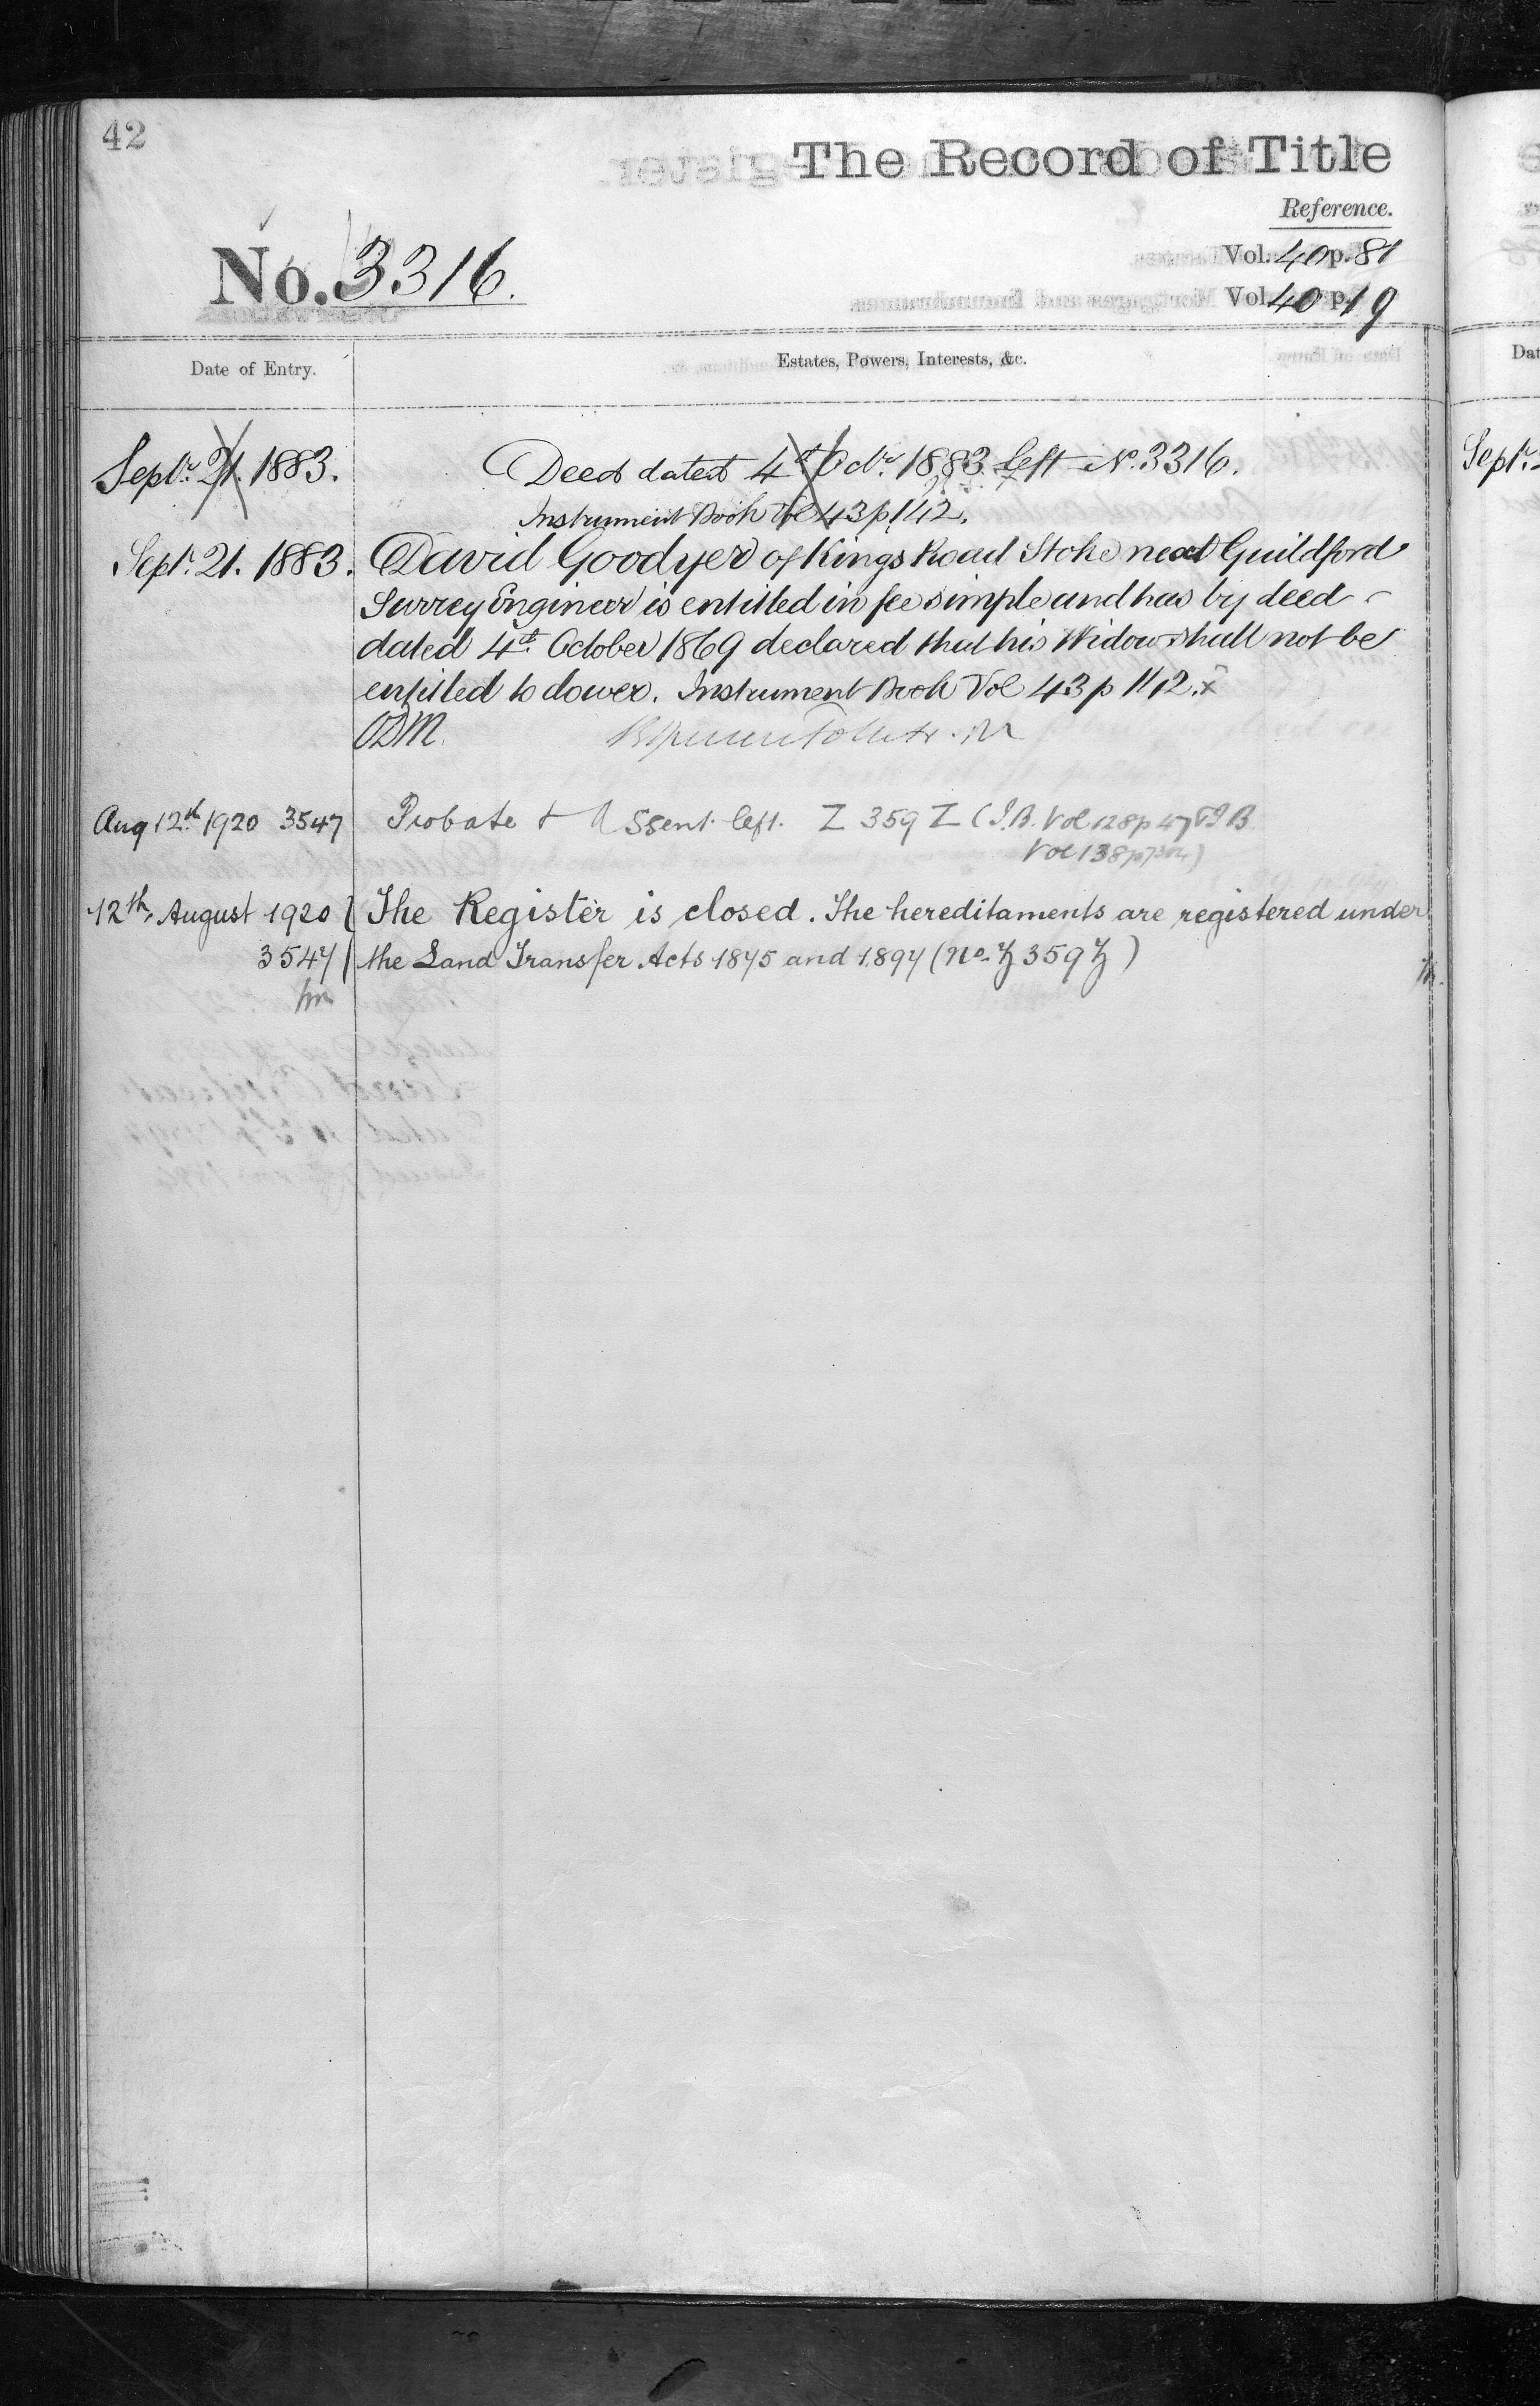 42
The Record of Title
Reference.
No. 3316.
Vol. 40 p. 81
Vol. 40 p. 19
Date of Entry.
Estates, Powers, Interests, &c.
Septr. 21. 1883.
Deed dated 4th Octr. 1883 left No. 3316.
Instrument Book Vol 43 p 142.
Septr. 21. 1883.
David Goodyer of Kings Road Stoke next Guildford
Surrey Engineer is entitled in fee simple and has by deed
dated 4th October 1869 declared that his Widow shall not be
entitled to dower. Instrument Book Vol 43 p 142. x
Aug 12th 1920 3547
Probate + Assent left. Z 359 Z (I.B. Vol 128 p 47 & I B
Vol 138
12th August 1920
3547
The Register is closed. The hereditaments are registered under
the Land Transfer Acts 1875 and 1897 (No. Z 359 Z)
Septr.